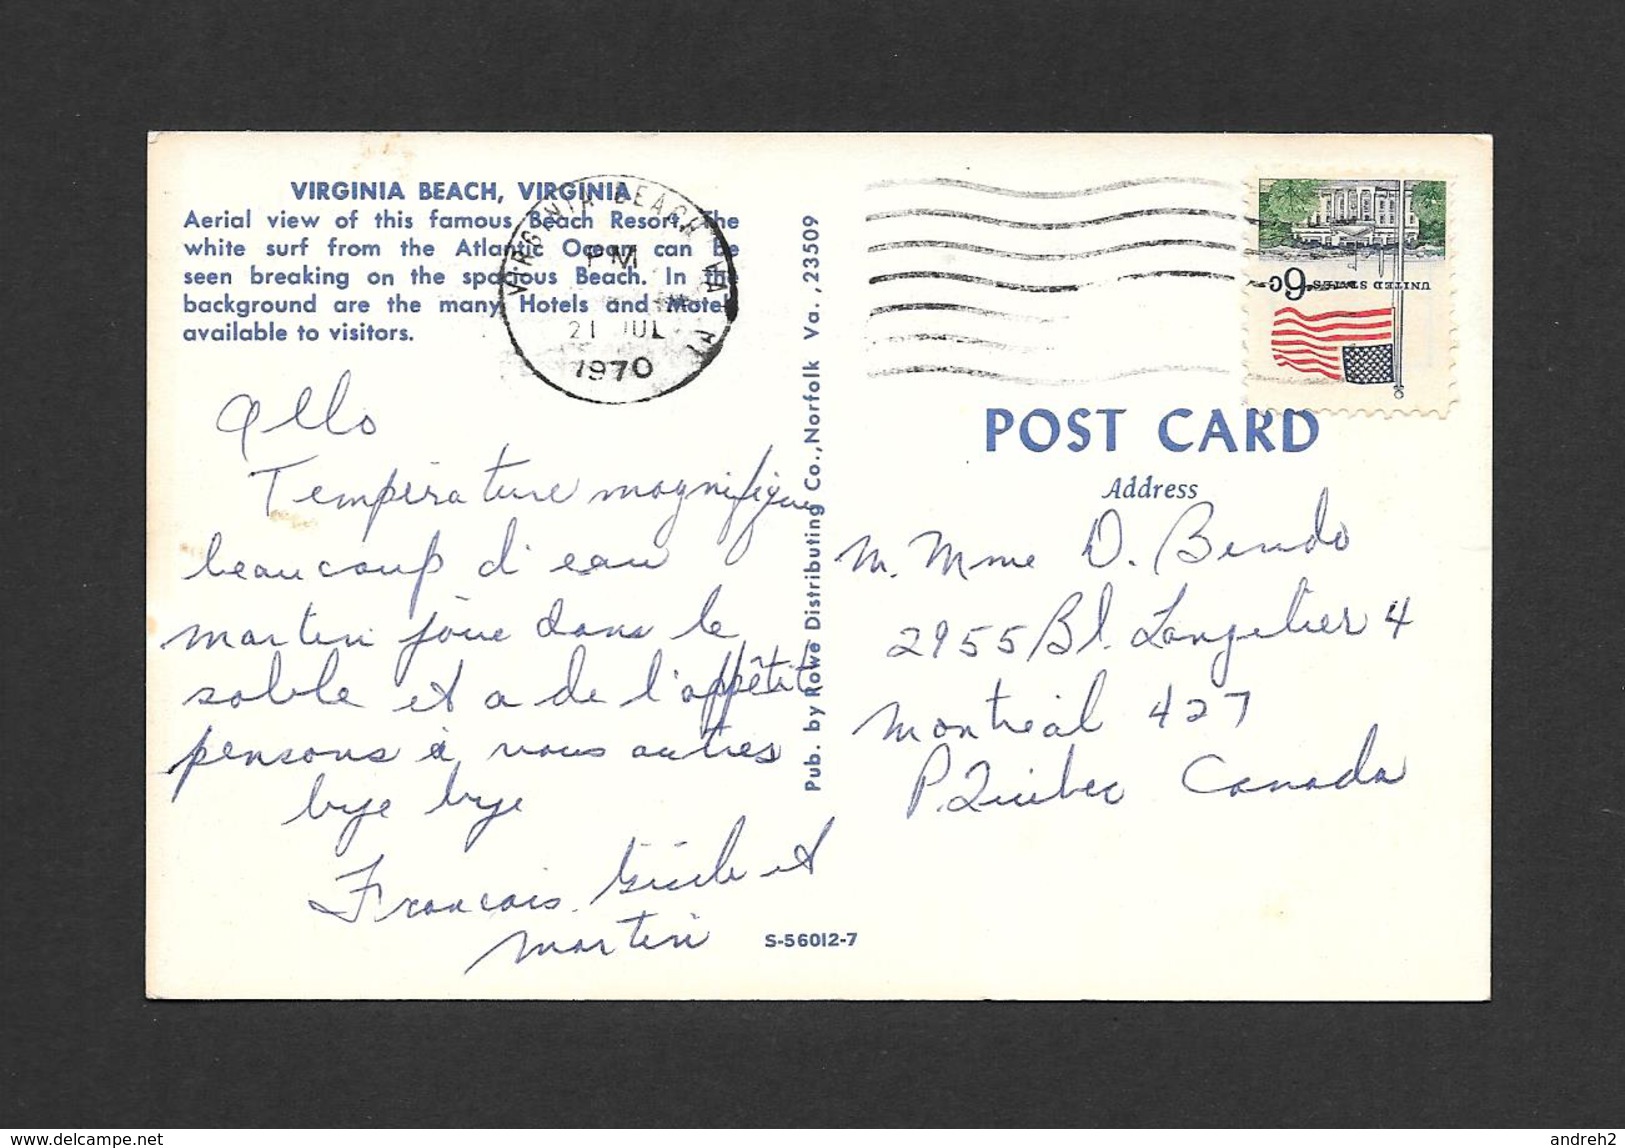 VIRGINIA BEACH, VIRGINIA
Aerial view of this famous Beach Resort. The
white surf from the Atlantic Ocean can be
seen breaking on the spacious Beach. In the
background are the many Hotels and Motels
available to visitors.
VIRGINIA BEACH VA
PM
21 JUL
1970
Allo
Température magnifique
beaucoup d'eau
martin joue dans le
sable et a de l'appétit
pensons à vous autres
bye bye
Francois. Gisèle et
martin
S-56012-7
Pub. by Rowe Distributing Co., Norfolk Va., 23509
UNITED STATES 6c
POST CARD
Address
M. Mme D. Bendo
2955 Bl. Langelier 4
Montréal 427
P. Québec Canada
delcampe.net
andreh2